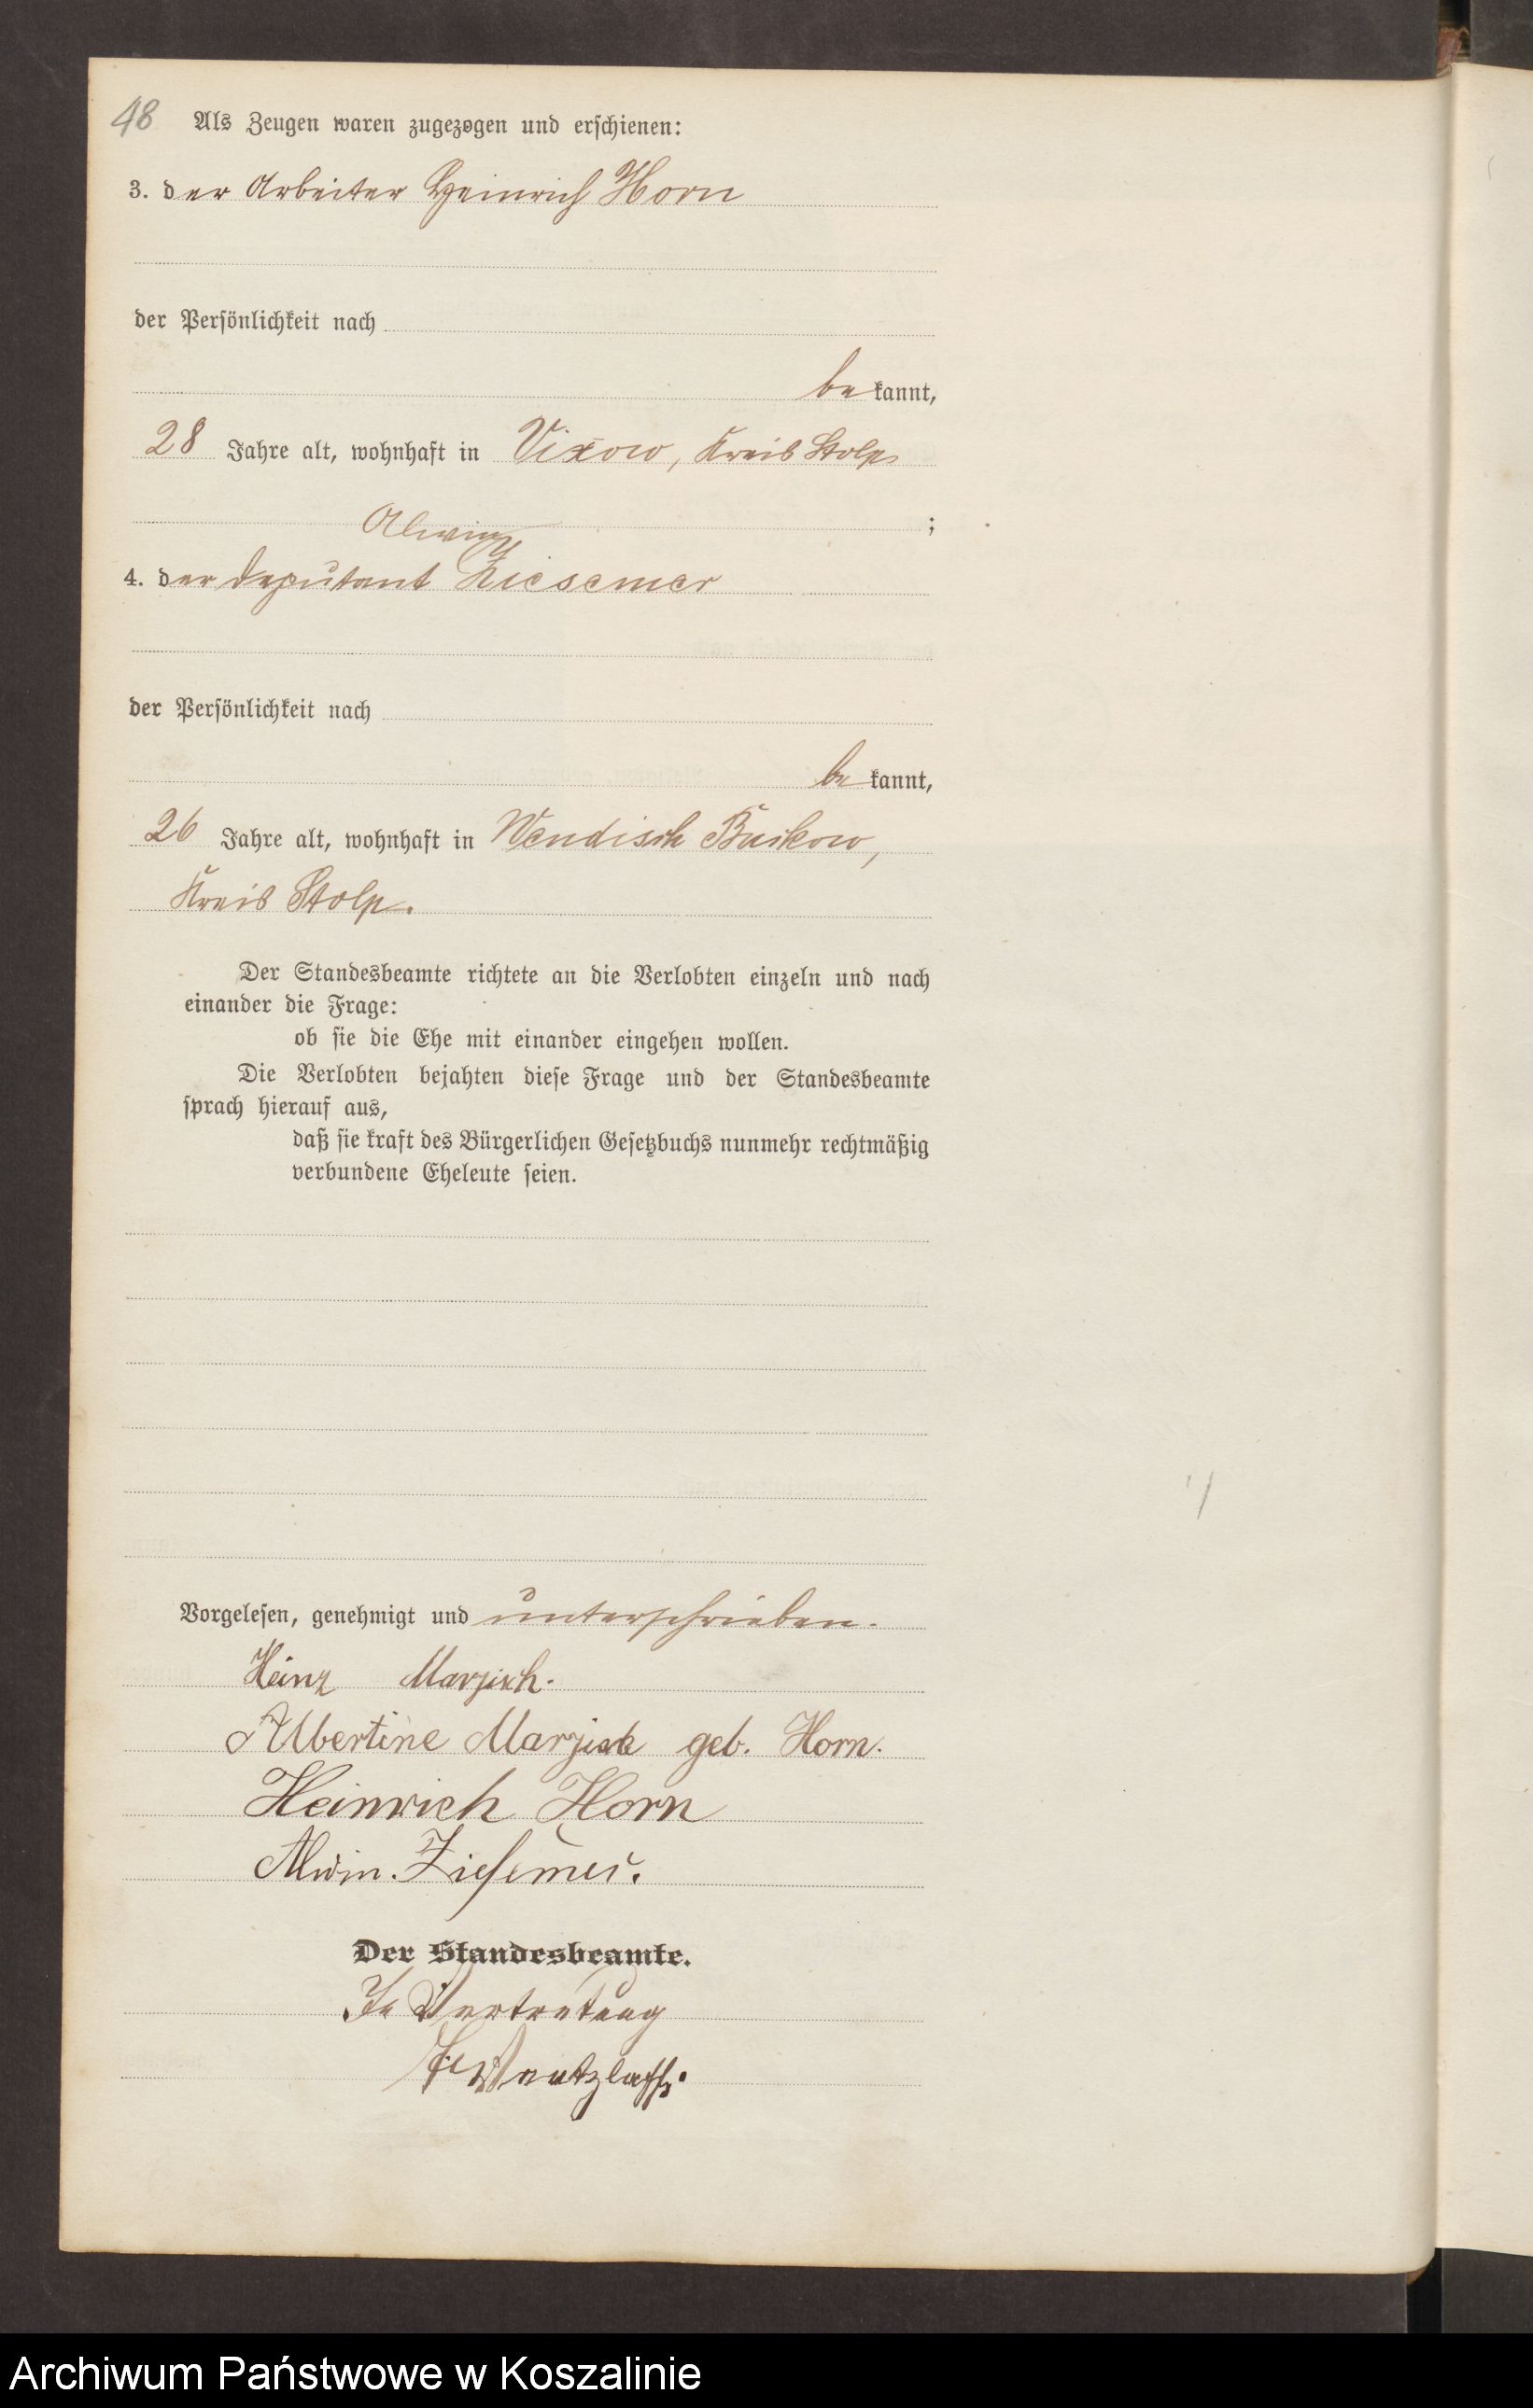 48 Als Zeugen waren zugezogen und erschienen:
3. der Arbeiter Heinrich Horn
der Persönlichkeit nach
be kannt,
28 Jahre alt, wohnhaft in Vixow, Kreis Stolp
;
Alwin
4. der Deputant Ziesemer
der Persönlichkeit nach
be kannt,
26 Jahre alt, wohnhaft in Wendisch Buckow,
Kreis Stolp.
Der Standesbeamte richtete an die Verlobten einzeln und nach
einander die Frage:
ob sie die Ehe mit einander eingehen wollen.
Die Verlobten bejahten diese Frage und der Standesbeamte
sprach hierauf aus,
daß sie kraft des Bürgerlichen Gesetzbuchs nunmehr rechtmäßig
verbundene Eheleute seien.
Vorgelesen, genehmigt und unterschrieben.
Heinz Marzisch.
Albertine Marzisch geb. Horn.
Heinrich Horn
Alwin. Ziesemer.
Der Standesbeamte.
In Vertretung
Wentzlaff.
Archiwum Państwowe w Koszalinie